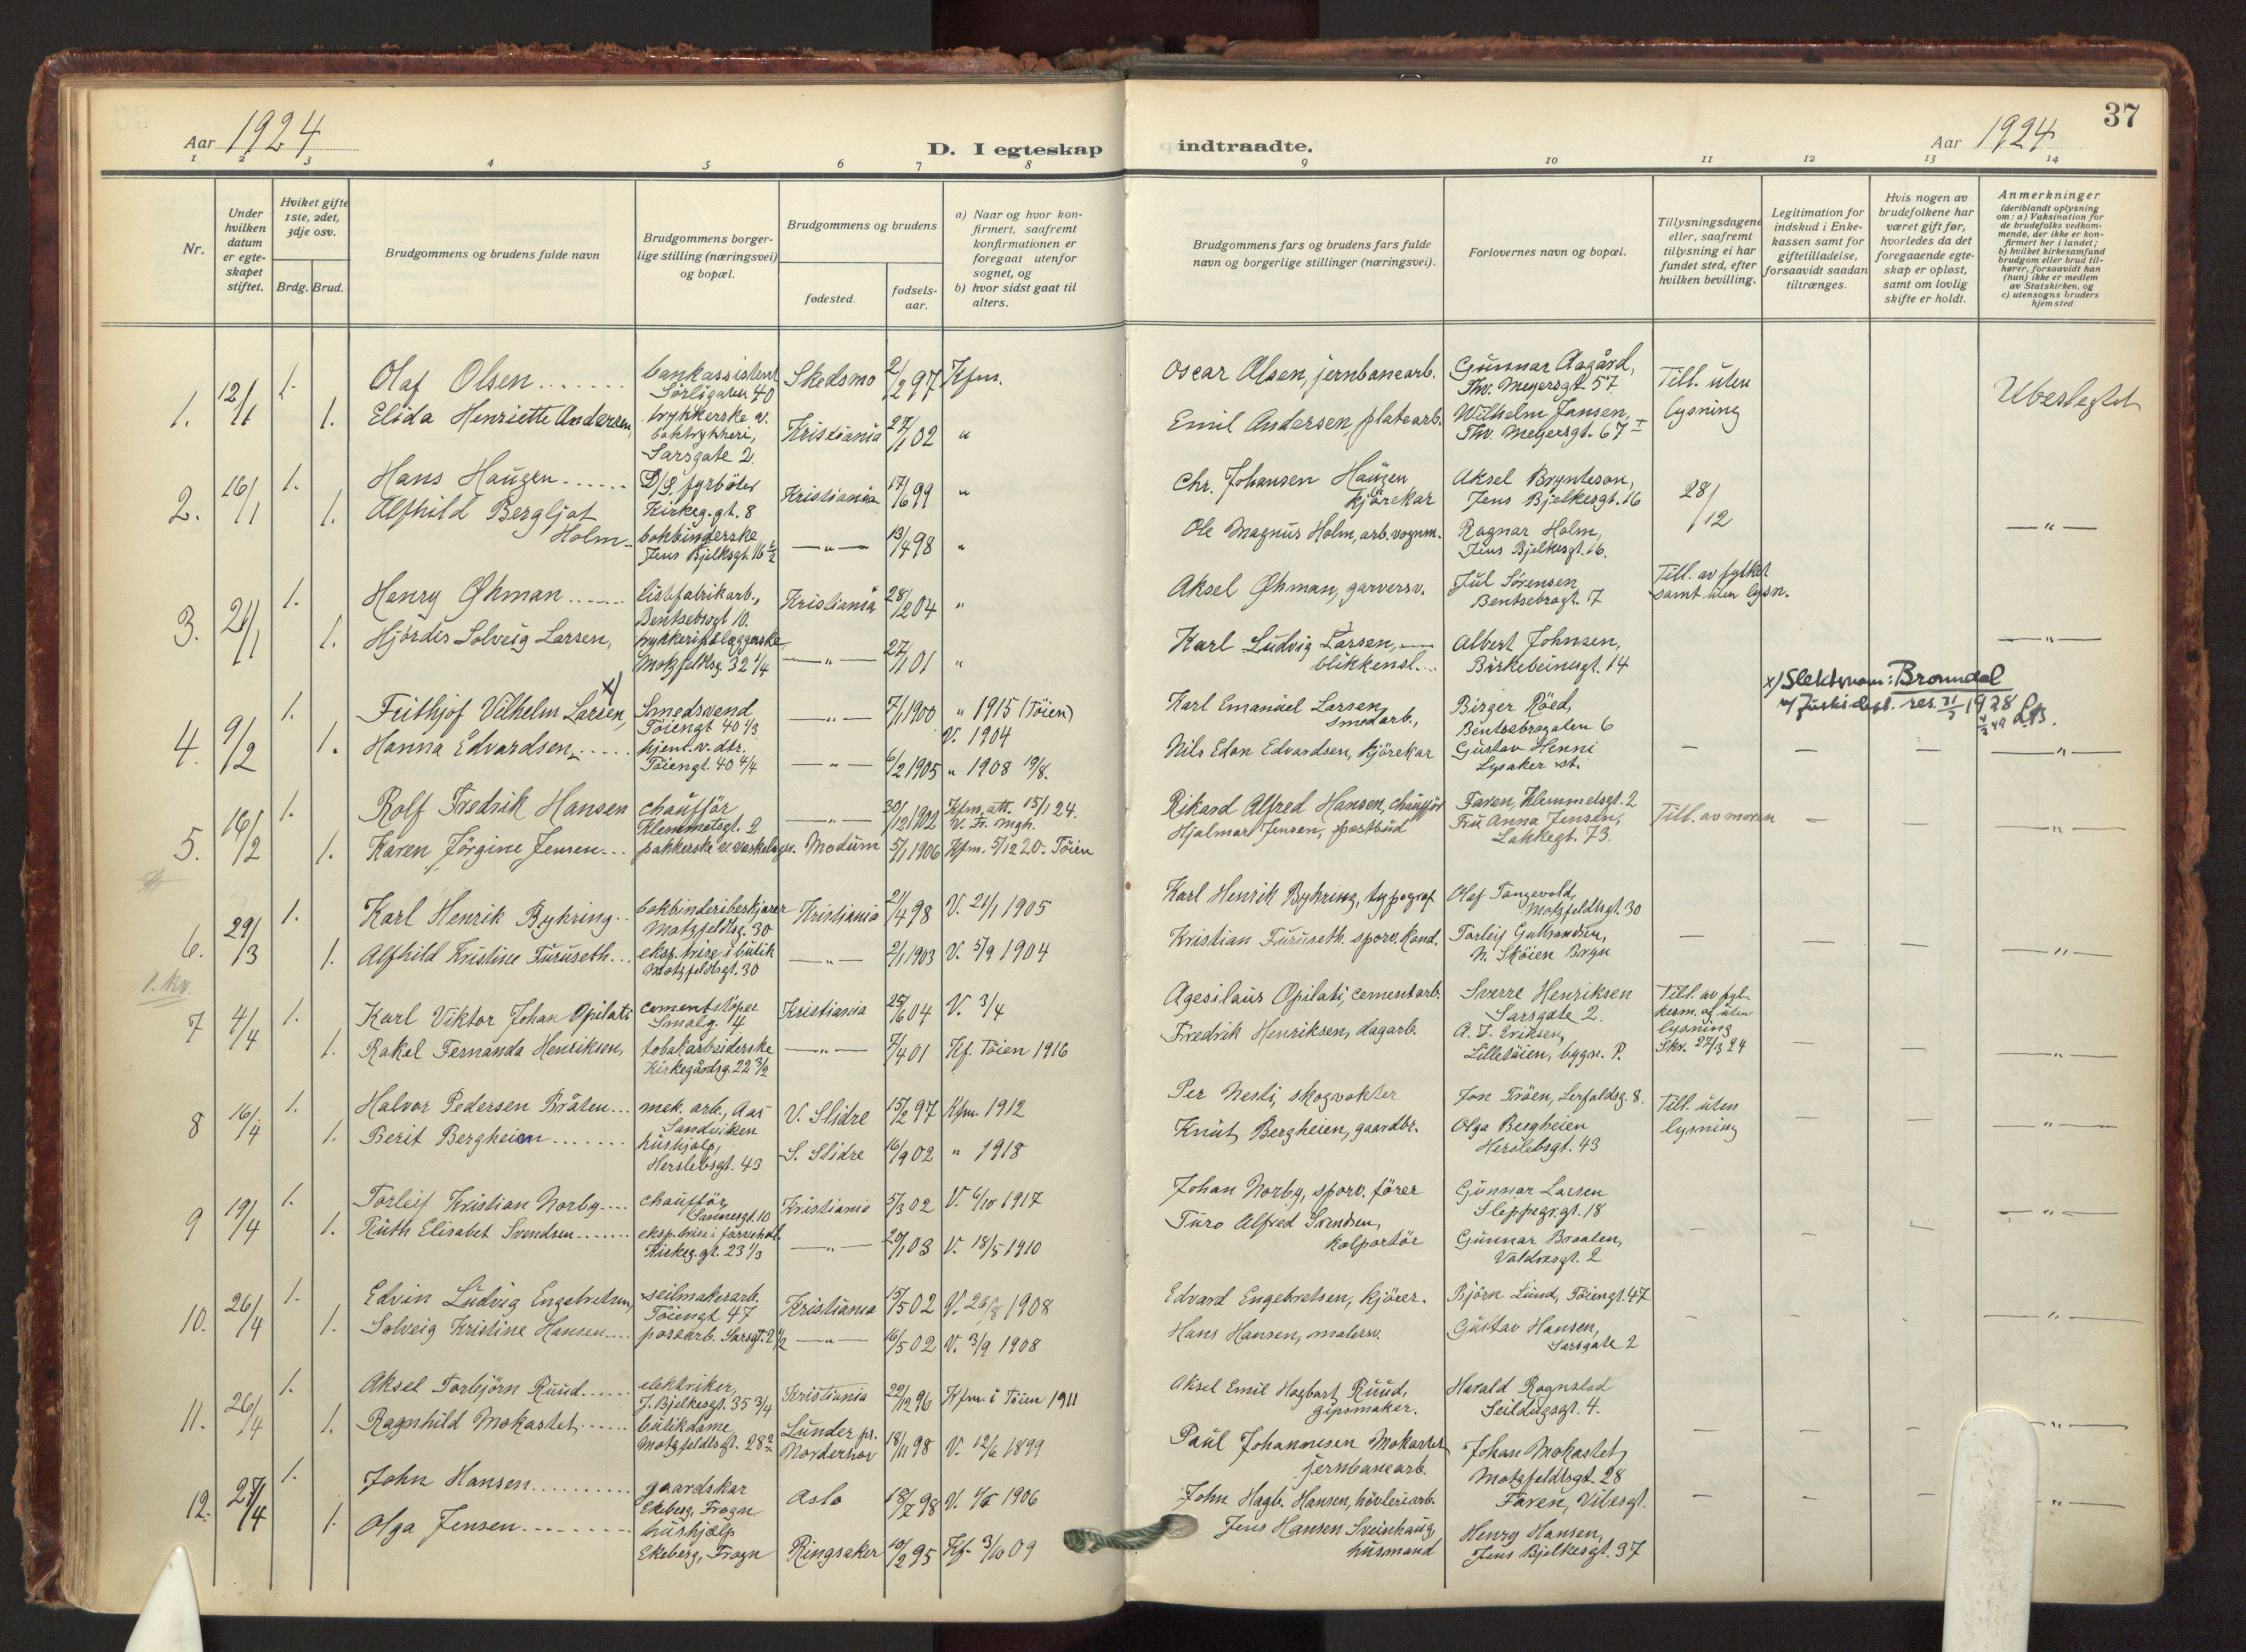 Aar 1924
D. I egteskap indtraadte.
Aar 1924
37
1 2 3 4 5 6 7 8 9 10 11 12 13 14
Nr.
Under hvilken datum er egteskapet stiftet.
Hviket gifte 1ste, 2det, 3dje osv.
Brdg. Brud.
Brudgommens og brudens fulde navn
Brudgommens borgerlige stilling (næringsvei) og bopæl.
Brudgommens og brudens
fødested.
fødselsaar.
a) Naar og hvor konfirmert, saafremt konfirmationen er foregaat utenfor sognet, og
b) hvor sidst gaat til alters.
Brudgommens fars og brudens fars fulde navn og borgerlige stillinger (næringsvei).
Forlovernes navn og bopæl.
Tillysningsdagene eller, saafremt tillysning ei har fundet sted, efter hvilken bevilling.
Legitimation for indskud i Enkekassen samt for giftetilladelse, forsaavidt saadan tiltrænges.
Hvis nogen av brudefolkene har været gift før, hvorledes da det foregaaende egteskap er opløst, samt om lovlig skifte er holdt.
Anmerkninger
(deriblandt oplysning om: a) Vaksination for de brudefolks vedkommende, der ikke er konfirmert her i landet; b) hvilket kirkesamfund brudgom eller brud tilhører, forsaavidt han (hun) ikke er medlem av Statskirken, og c) utensogns bruders hjemsted
1. 12/1 1. Olaf Olsen bankassistent Sörligaten 40 Skedsmo 2/2 97 Kfm. Oscar Olsen, jernbanearb. Gunnar Aagård, Thv. Meyersgt. 57. Till. uten lysning Ubeslegtet
1. Elida Henriette Andersen, trykkerske v. boktrykkeri, Sarsgate 2. Kristiania 27/1 02 " Emil Andersen, platearb. Wilhelm Jansen, Thv. Meyersgt. 67 I
2. 16/1 1. Hans Haugen D/S. fyrböter Kirkeg.gt. 8 Kristiania 17/6 99 " Chr. Johansen Haugen kjörekar Aksel Brynteson, Jens Bjelkesgt. 16 28/12
1. Alfhild Bergljot Holm bokbinderske Jens Bjelksgt. 16 — " — 13/4 98 " Ole Magnus Holm, arb. vognm. Ragnar Holm, Jens Bjelkesgt. 16. — " —
3. 21/1 1. Henry Öhman listefabrikarb., Bentsebrogt 10. Kristiania 28/12 04 " Aksel Öhman, garversv. Jul Sörensen Bentsebrogt. 7 Till. av fylket samt uten lysn.
1. Hjördis Solveig Larsen, trykkeripålæggerske Motzfeldtsg. 32 1/4 — " — 27/1 01 " Karl Ludvig Larsen, blikkensl. Albert Johnsen, Birkebeinergt. 14 — " —
x) Slektsnavn: Bromdal
v/ Justisdept. res. 31/3 1928
4. 9/2 1. Frithjof Vilhelm Larsen, x) Smedsvend Töiengt 40 1/3 — " — 7/1 1900 " 1915 (Töien) V. 1904 Karl Emanuel Larsen smedarb., Birger Röed, Bentsebrogaten 6
1. Hanna Edvardsen hjem. v. dtr. Töiengt. 40 4/4 — " — 6/2 1905 " 1908 19/8. Nils Edon Edvardsen, kjörekar Gustav Henni Lysaker st. — — — — " —
5. 16/2 1. Rolf Fredrik Hansen chaufför Klemmetsgt. 2 — " — 30/12 1902 Kfm. att. 15/1 24. V. Fr. Mgh. Rikard Alfred Hansen, chaufför Faren, Klemmetsgt. 2
1. Karen Jörgine Jensen pakkerske v. Modum 5/1 1906 Kfm. 5/12 20. Töien Hjalmar Jensen, postbud Fru Anna Jensen, Lakkegt. 73. Till. av moren — — — " —
6. 29/3 1. Karl Henrik Byhring bokbinderibeskjærer Motzfeldtsg. 30 Kristiania 2/4 98 V. 21/1 1905 Karl Henrik Byhring, typograf Olaf Tangevold, Motzfeldtsgt. 30
1. Alfhild Kristine Furuseth eksp.trise i butik Motzfeldtsgt. 30 — " — 2/1 1903 V. 5/9 1904 Kristian Furuseth. sporv. kond. Torleif Gulbrandsen, N. Sköien Bryn — — — — " —
1. kv.
7 4/4 1. Karl Viktor Johan Opilati cementstöper Smalg. 14 Kristiania 25/6 04 V. 3/4 Agesilaus Opilati, cementarb. Sverre Henriksen Sarsgate 2. Till. av fylkesm. og uten lysning Skr. 27/3 24
1. Rakel Fernanda Henriksen, tobakarbeiderske Kirkegårdsg. 22 3/2 — " — 7/4 01 Kf. Töien 1916 Fredrik Henriksen, dagarb. A. J. Eriksen, Lilletöien, bygn. P. — — — " —
8 16/4 1. Halvor Pedersen Bråten mek. arb., Aas Sandviken V. Slidre 15/2 97 Kfm. 1912 Per Nesti, skogvokter Jon Tröen, Lerfaldsg. 8. Till. uten lysning
1. Berit Bergheim hushjælp, Herslebsgt. 43 S. Slidre 16/9 02 " 1918 Knut Bergheien, gaardbr. Olga Bergheien Herslebsgt. 43 — — — " —
9 19/4 1. Torleif Kristian Norby chaufför Sannergt. 10 Kristiania 5/3 02 V. 6/10 1917 Johan Norby, sporv. förer Gunnar Larsen Sleppegr.gt. 18
1. Ruth Elisabet Svendsen eksp.trise i farvehdl. Kirkeg.gt. 23 1/3 — " — 27/1 03 V. 18/5 1910 Turo Alfred Svendsen, kolportör Gunnar Braaten, Valdresgt. 2 — — — — " —
10. 26/4 1. Edvin Ludvig Engebretsen, seilmakerarb. Töiengt 47 Kristiania 15/5 02 V. 26/8 1908 Edvard Engebretsen, kjörer. Björn Lund, Töiengt. 47
1. Solveig Kristine Hansen posearb. Sarsgt. 2 1/2 — " — 16/5 02 V. 3/9 1908 Hans Hansen, malersv. Gustav Hansen, Sarsgate 2 — — — — " —
11. 26/4 1. Aksel Torbjörn Ruud elektriker, J. Bjelkesgt. 35 3/4 Kristiania 22/12 96 Kfm. i Töien 1911 Aksel Emil Hagbart Ruud, gipsmaker. Harald Rognstad Seildugsgt. 4.
1. Ragnhild Mokastet butikdame Motzfeldtsgt. 28 Lunder pr. Norderhov 18/11 98 V. 12/6 1899 Paul Johannesen Mokastet jernbanearb. Johan Mokastet, Motzfeldtsgt. 28 — — — — " —
12. 27/4 1. John Hansen gaardskar Ekeberg, Frogn Oslo 18/7 98 V. 1906 John Hagb. Hansen, hövleriarb. Faren, Vibesgt. — — — — " —
1. Olga Jensen hushjælp Ekeberg, Frogn Ringsaker 10/2 95 Kf. 3/10 09 Jens Hansen Sveinhaug, husmand Henry Hansen, Jens Bjelkesgt. 37